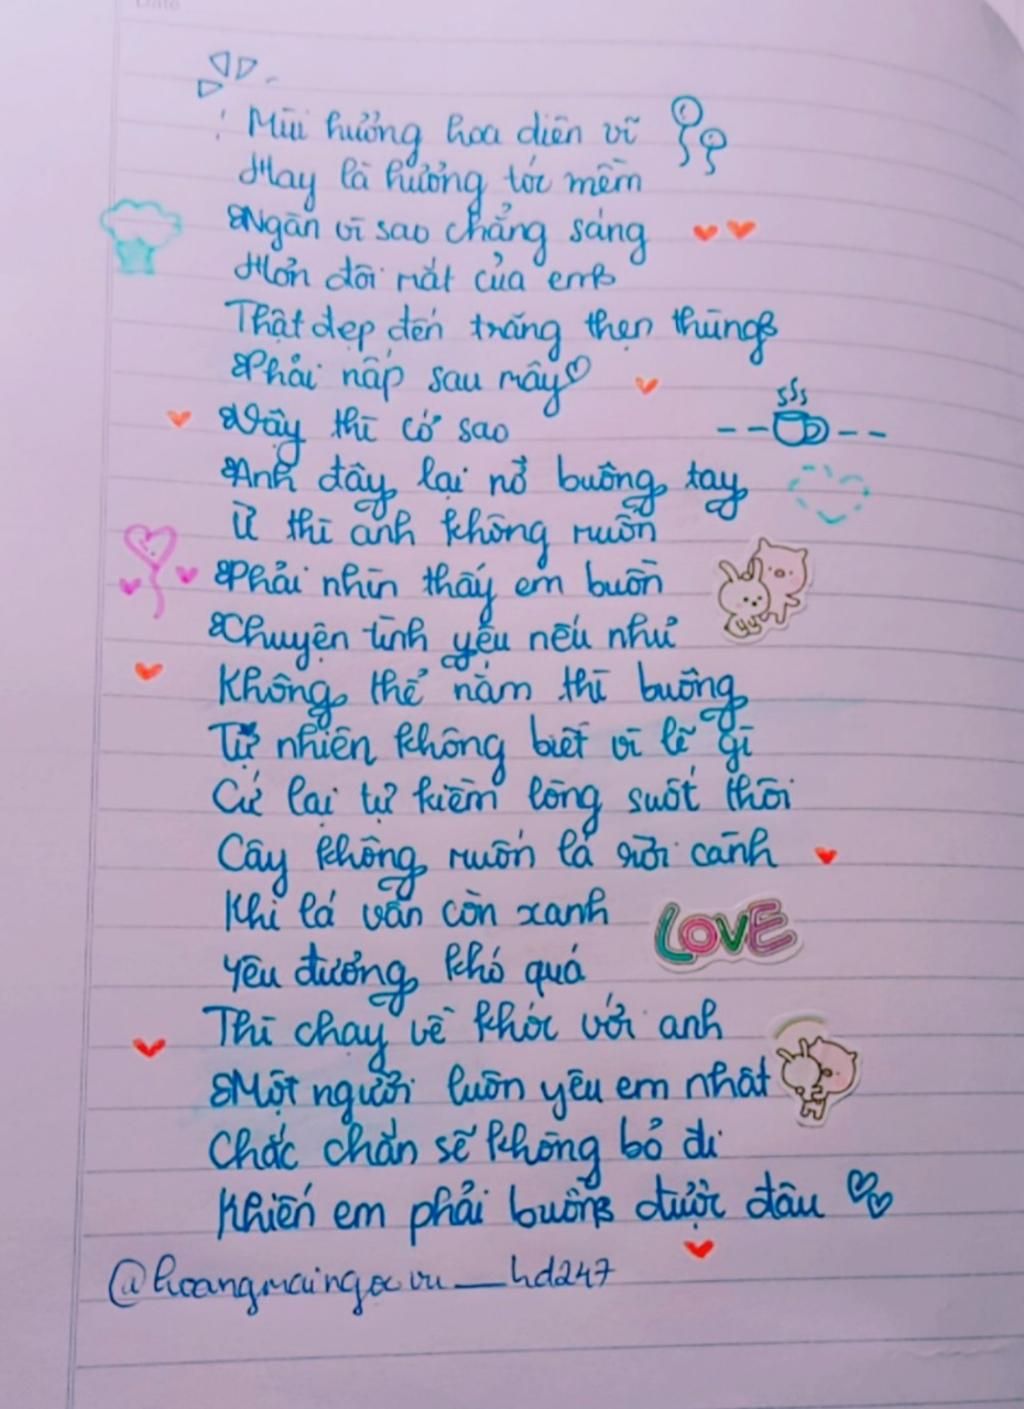 Date
Mùi hương hoa diên vĩ
Hay là hương tóc mềm
Ngàn vì sao chẳng sáng
Hơn đôi mắt của em
Thật đẹp đến trăng thẹn thùng
Phải nấp sau mây
Vậy thì cớ sao
Anh đây lại nỡ buông tay
Ừ thì anh không muốn
Phải nhìn thấy em buồn
Chuyện tình yêu nếu như
Không thể nắm thì buông
Tự nhiên không biết vì lẽ gì
Cứ lại tự kiềm lòng suốt thôi
Cây không muốn lá rời cành
Khi lá vẫn còn xanh
Yêu đương khó quá
Thì chạy về khóc với anh
Một người luôn yêu em nhất
Chắc chắn sẽ không bỏ đi
Khiến em phải buồn được đâu
LOVE
@hoangmaingocvu_hd247